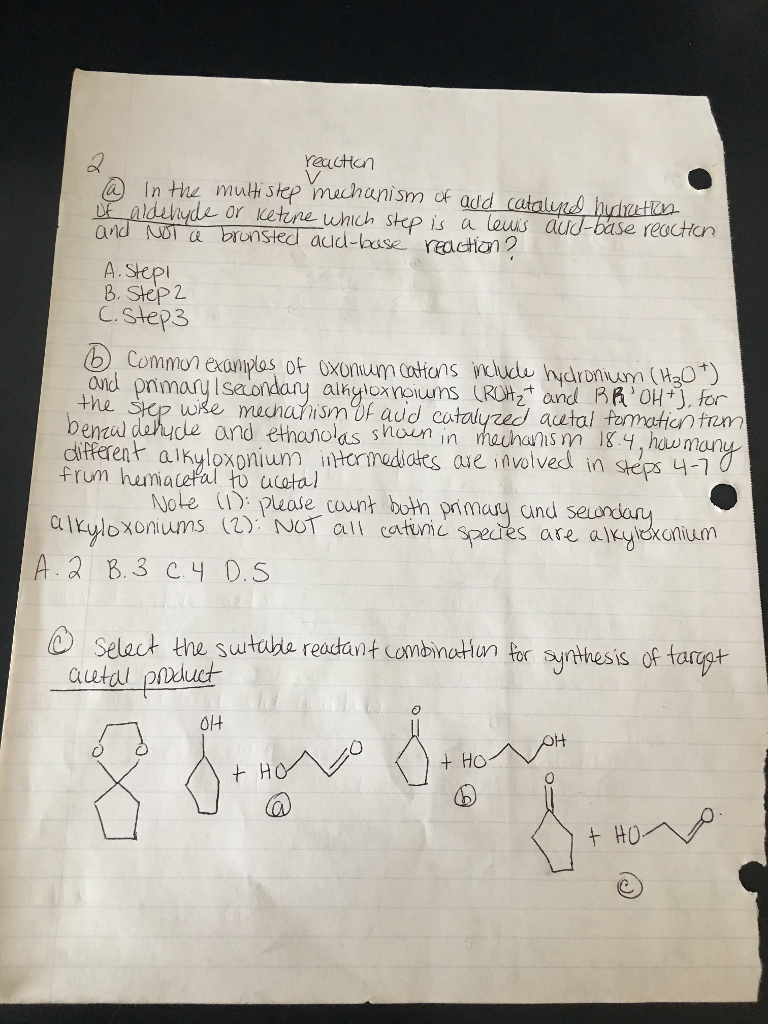 2
reaction
(a) In the multistep mechanism of acid catalyzed hydration
of aldehyde or ketone which step is a lewis acid-base reaction
and NOT a bronsted acid-base reaction?
A. Step1
B. Step 2
C. Step3
(b) Common examples of oxonium cations include hydronium (H3O+)
and primary/secondary alkyloxnoiums (ROH2+ and RR'OH+). for
the step wise mechanism of acid catalyzed acetal formation from
benzaldehyde and ethanol as shown in mechanism 18.4, how many
different alkyloxonium intermediates are involved in steps 4-7
from hemiacetal to acetal
Note (1): please count both primary and secondary
alkyloxoniums (2): NOT all cationic species are alkyloxonium
A. 2 B. 3 C. 4 D. 5
(c) Select the suitable reactant combination for synthesis of target
acetal product
O O
OH
+ HO O
(a)
O
+ HO OH
(b)
O
+ HO O
(c)